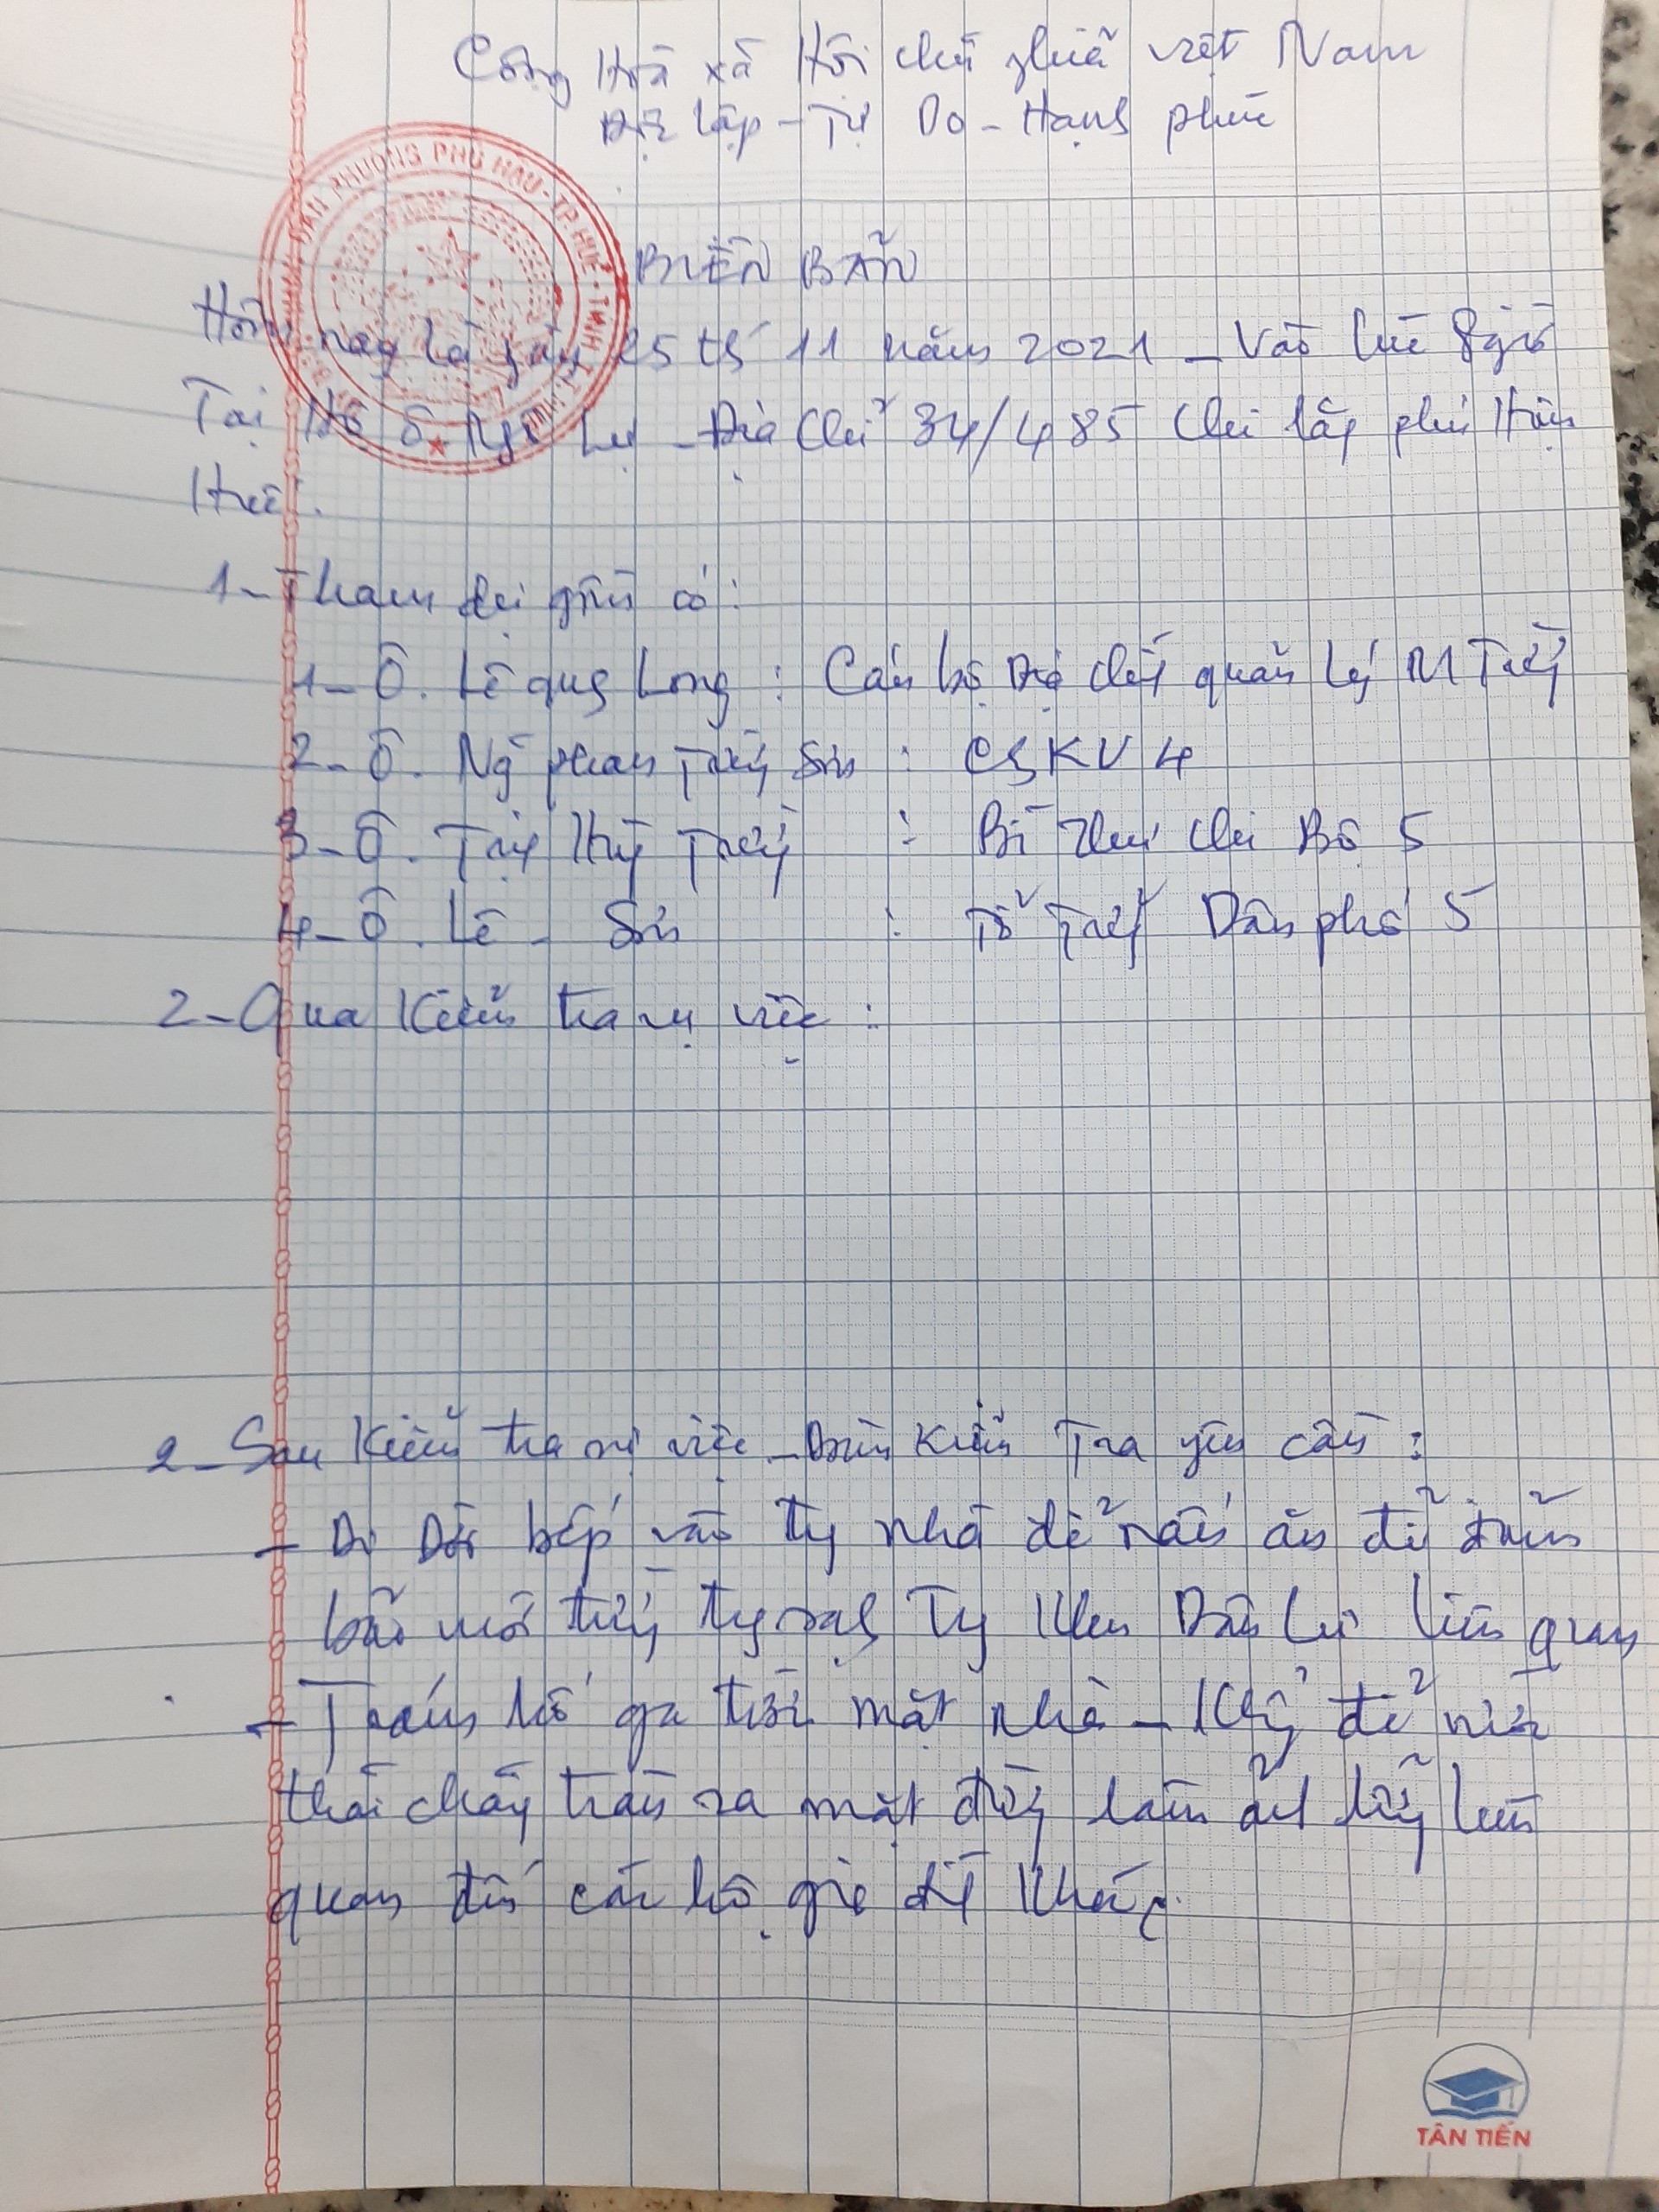 Cộng Hòa xã Hội chủ nghĩa việt Nam
Độc lập - Tự Do - Hạnh phúc
DÂN PHƯỜNG PHÚ HẬU - TP. HUẾ - TỈNH T.T. HUẾ
BIÊN BẢN
Hôm nay là ngày 25 tháng 11 năm 2021 - Vào lúc 8 giờ
Tại Hộ Ô. Ngô Lự - Địa chỉ 34/485 Chi lăng phú Hậu
Huế.
1 - Tham dự gồm có:
1 - Ô. Lê quang Long : Cán bộ Địa chính quản lý M Trường
2 - Ô. Ng phan Trường Sơn : CSKV 4
3 - Ô. Hùng : Bí thư chi Bộ 5
4 - Ô. Lê - Sơn : Tổ Trưởng Dân phố 5
2 - Qua Kiểm tra vụ việc :
2 - Sau Kiểm tra vụ việc - Đoàn Kiểm Tra yêu cầu :
- Di Dời bếp vào trong nhà để nấu ăn để đảm
bảo môi trường trong Khu Dân Cư liên quan
- Trám hố ga trước mặt nhà - Không để nước
thải chảy tràn ra mặt đường làm ảnh hưởng liên
quan đến các hộ gia đình Khác.
TÂN TIẾN